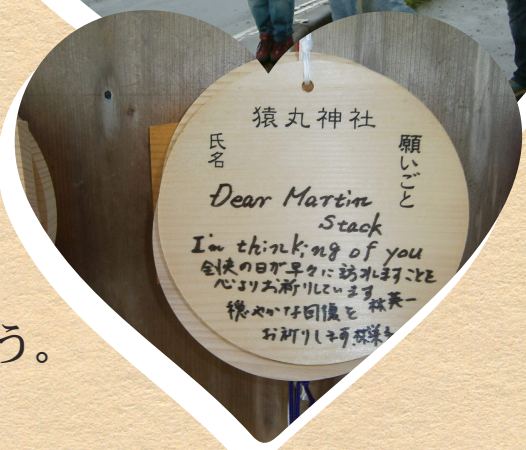 猿丸神社
願いごと
氏名
Dear Martin
Stack
I'm thinking of you
全快の日が早々に訪れますことを
心よりお祈りしています
林英一
穏やかな回復を
お祈りします
う。